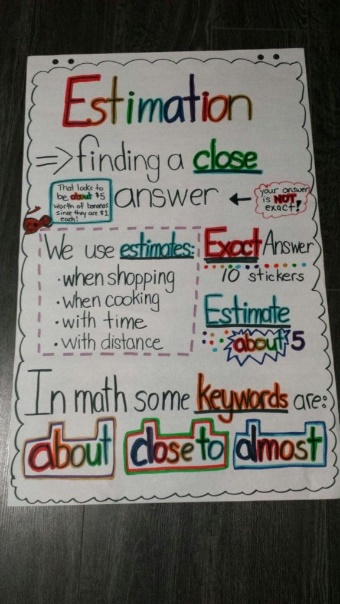 Estimation
=> finding a close
answer
That looks to
be about $5
worth of bananas
since they are $1
each!
← your answer
is NOT
exact!
We use estimates:
• when shopping
• when cooking
• with time
• with distance
Exact Answer
10 stickers
Estimate
about 5
In math some keywords are:
about close to almost